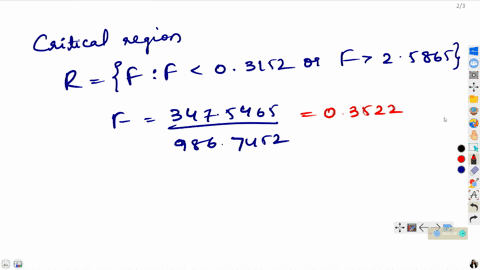 2/3
Critical region
R = {F : F < 0.3152 or F > 2.5865}
F = 347.5465 / 986.7452 = 0.3522